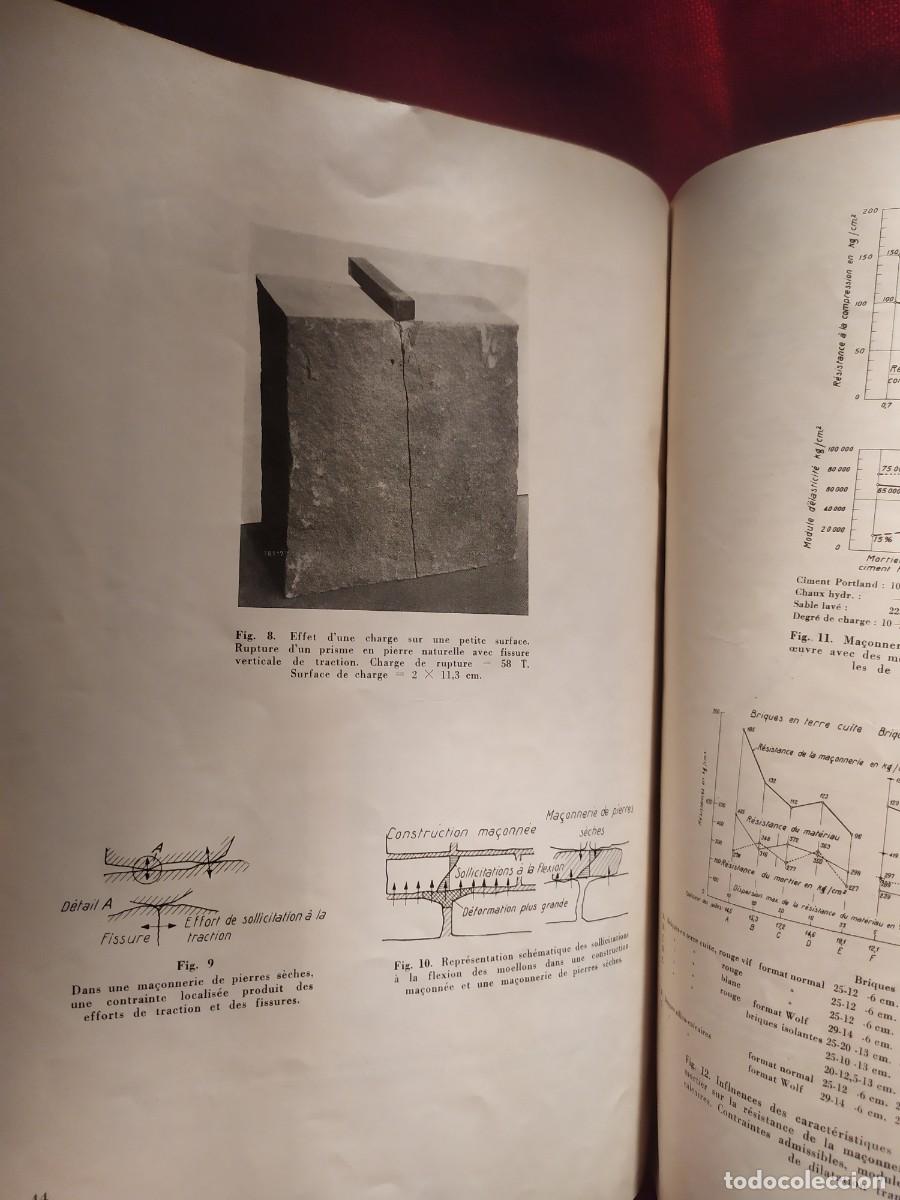 78517
Fig. 8. Effet d'une charge sur une petite surface.
Rupture d'un prisme en pierre naturelle avec fissure
verticale de traction. Charge de rupture = 58 T.
Surface de charge = 2 × 11,3 cm.
A
Détail A
Effort de sollicitation à la
traction
Fissure
Fig. 9
Dans une maçonnerie de pierres sèches,
une contrainte localisée produit des
efforts de traction et des fissures.
Construction maçonnée
Maçonnerie de pierres
sèches
Sollicitations à la flexion
Déformation plus grande
Fig. 10. Représentation schématique des sollicitations
à la flexion des moellons dans une construction
maçonnée et une maçonnerie de pierres sèches
Résistance à la compression en kg/cm²
200
150
100
50
0
150
100
0,7
Module d'élasticité kg/cm²
100 000
80 000
60 000
40 000
20 000
0
75 0
65 000
15 %
Mortier
ciment
Ciment Portland : 10
Chaux hydr. : —
Sable lavé : 22
Degré de charge : 10
Fig. 11. Maçonner
œuvre avec des m
les de
Briques en terre cuite
Résistance de la maçonnerie en kg/c
132
112
123
96
Résistance du matériau
Résistance du mortier en kg/cm²
Dispersion max. de la résistance du matériau en
A
B
C
D
E
F
terre cuite, rouge vif format normal 25-12 -6 cm.
rouge " 25-12 -6 cm.
blanc " 25-12 -6 cm.
rouge format Wolf 29-14 -6 cm.
briques isolantes 25-20 -13 cm.
25-10 -13 cm.
20-12,5-13 cm.
format normal 25-12 -6 cm.
format Wolf 29-14 -6 cm.
Briques
Fig. 12. Influences des caractéristiques
mortier sur la résistance de la maçonner
calcaires. Contraintes admissibles, module
de dilatation
todocoleccion